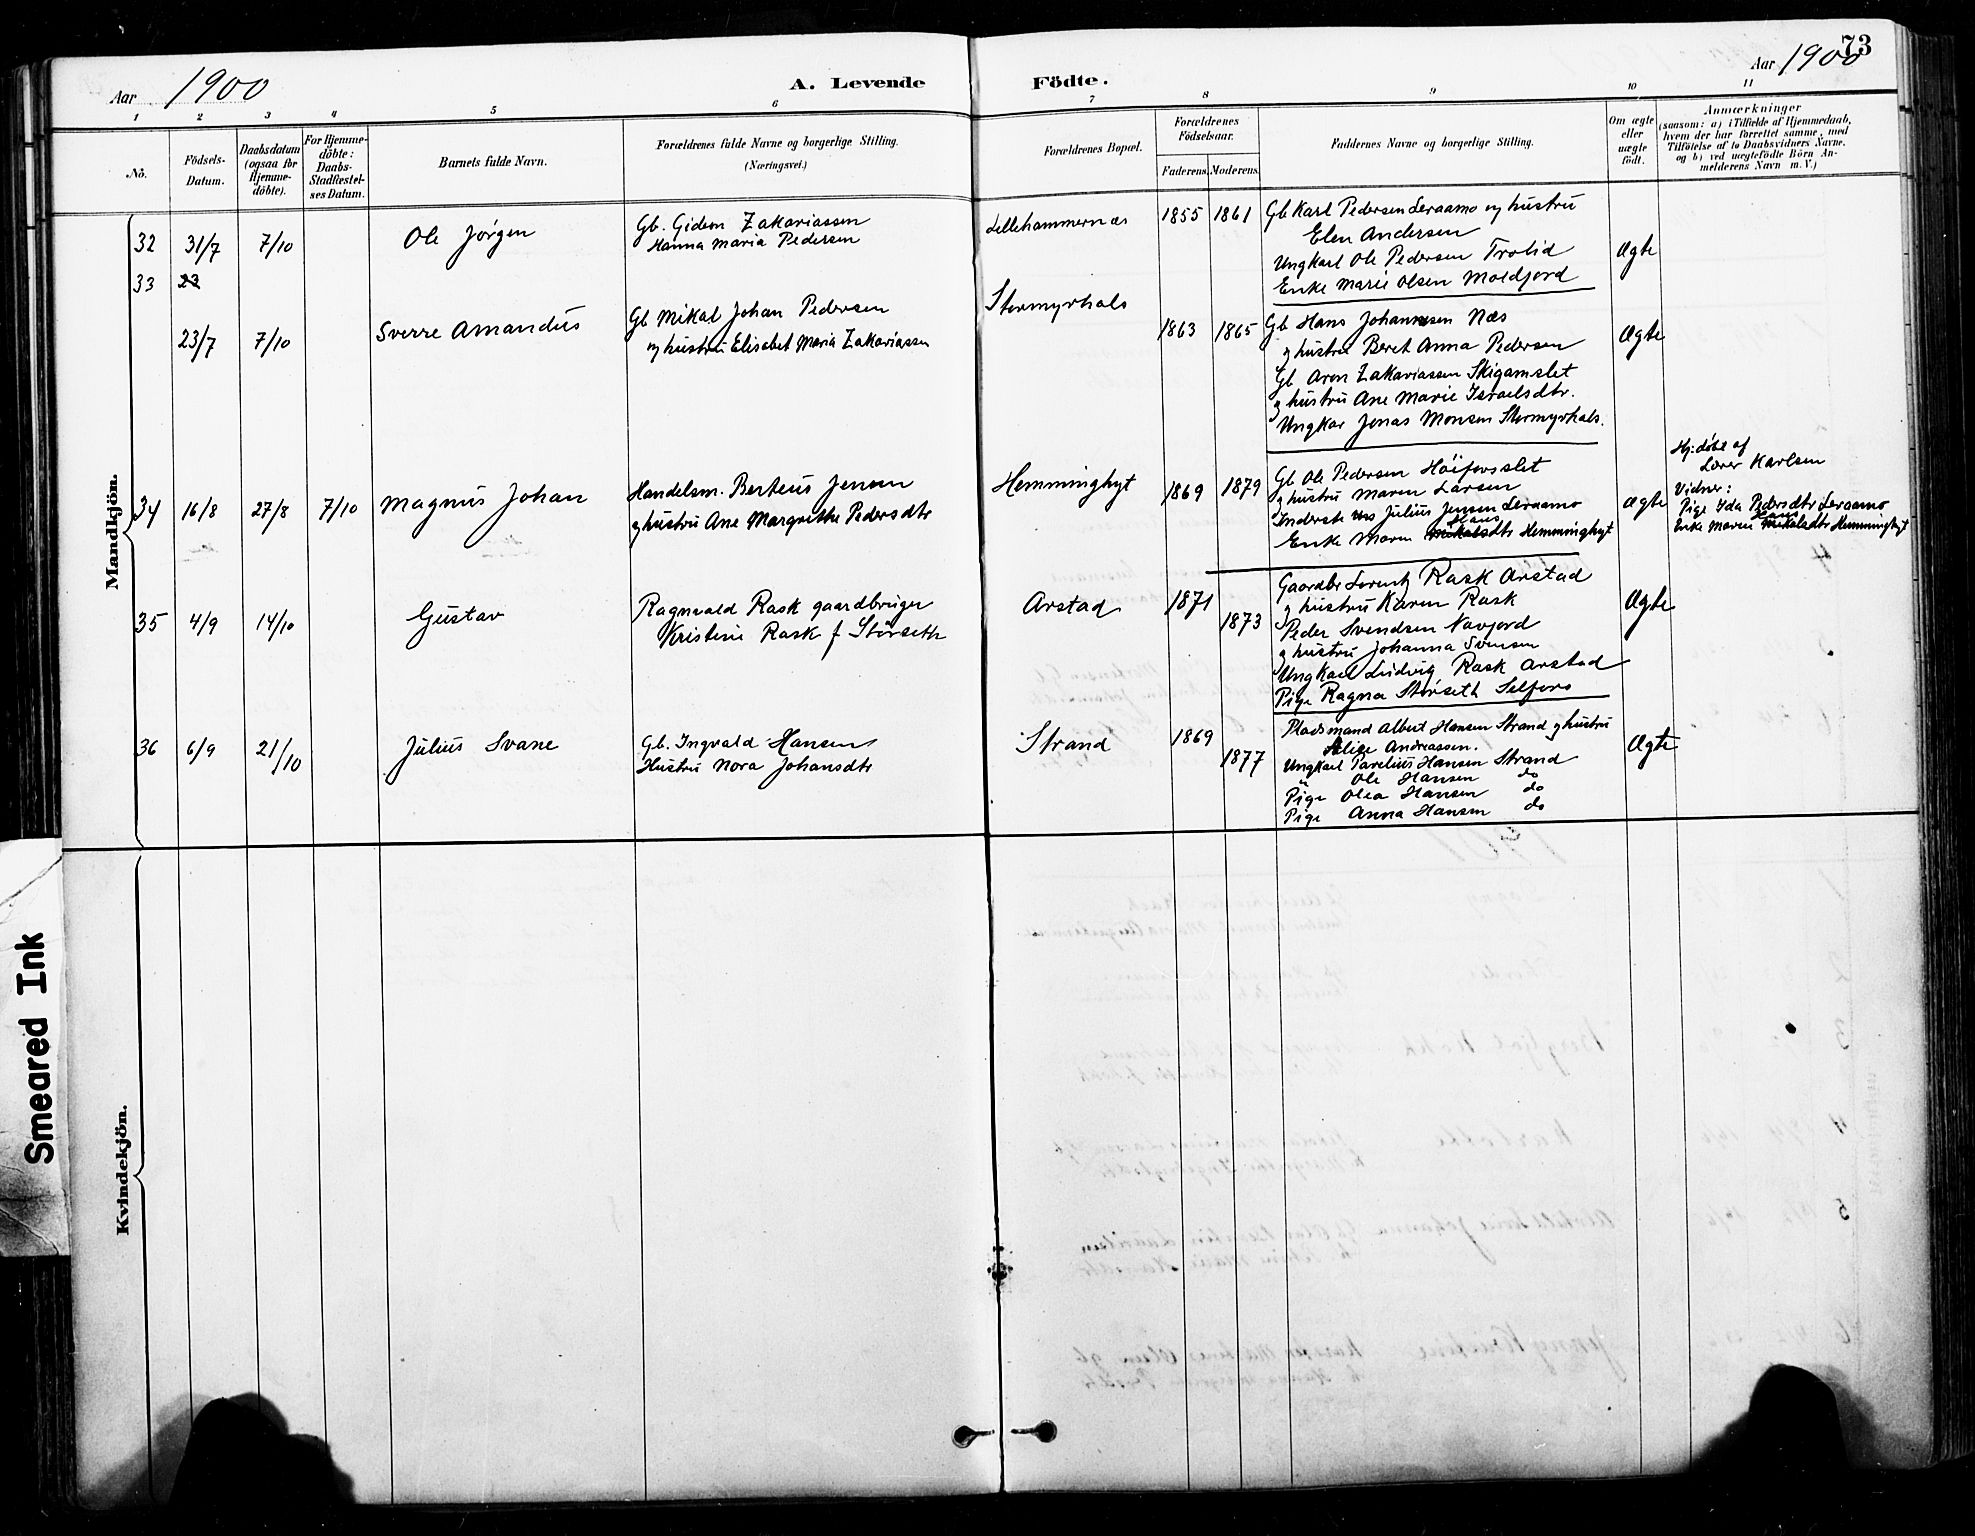 73
Aar 1900
A. Levende Födte.
Aar 1900
1 2 3 4 5 6 7 8 9 10 11
No.
Födsels-
Datum.
Daabsdatum
(ogsaa for
Hjemme-
döbte).
For Hjemme-
döbte:
Daabs-
Stadfæstel-
ses Datum.
Barnets fulde Navn.
Forældrenes fulde Navne og borgerlige Stilling.
(Næringsvei.)
Forældrenes Bopæl.
Forældrenes
Födselsaar.
Faderens. Moderens.
Faddernes Navne og borgerlige Stilling.
Om ægte
eller
uægte
födt.
Anmærkninger
(saasom: a) i Tilfælde af Hjemmedaab,
hvem der har forrettet samme, med
Tilföielse af to Daabsvidners Navne,
og b) ved uægtefödte Börn An-
melderens Navn m. V.)
Mandkjön.
32 31/7 7/10
Ole Jørgen
Gb. Gideon Zakariassen
Hanna Maria Pedersen
Lillehammernæs
1855 1861
Gb Karl Pedersen Leraamo og hustru
Elen Andersen
Ungkarl Ole Pedersen Trolid
Enke Marie Olsen Moldjord
Ægte
33 23
23/7 7/10
Sverre Amandus
Gb Mikal Johan Pedersen
og hustru Elisabet Maria Zakariassen
Stormyrhals
1863 1865
Gb Hans Johannesen Næs
og hustru Beret Anna Pedersen
Gb Aron Zakariassen Skigamslet
og hustru Ane Marie Israelsdtr.
Ungkar Jonas Monsen Stormyrhals.
Ægte
34 16/8 27/8 7/10
Magnus Johan
Handelsm. Berteus Jensen
og hustru Ane Margrethe Pedersdtr
Hemminghyt
1869 1879
Gb Ole Pedersen Høiforsslet
og hustru Maren Larsen
Inderste Urs Julius Jensen Leraamo
Hans
Enke Maren Mikalsdtr Hemminghyt
Ægte
Hj. døbt af
Lærer Karlsen
Vidner:
Pige Ida Pedersdtr Leraamo
Hans
Enke Maren Mikalsdtr Hemminghyt
35 4/9 14/10
Gustav
Ragnvald Rask gaardbruger
Kristine Rask f Størseth
Arstad
1871 1873
Gaardbr Lorentz Rask Arstad
og hustru Karen Rask
Peder Svendsen Navjord
og hustru Johanna Svensen
Ungkarl Ludvig Rask Arstad
Pige Ragna Størseth Selfors
Ægte
36 6/9 21/10
Julius Svane
Gb. Ingvald Hansen
Hustru Nora Johansdtr
Strand
1869 1877
Pladsmand Albert Hansen Strand og hustru
Andreassen.
Ungkarl Parelius Hansen Strand
" Ole Hansen do
Pige Olea Hansen do
Pige Anna Hansen do
Ægte
Kvindekjön.
Smeared Ink